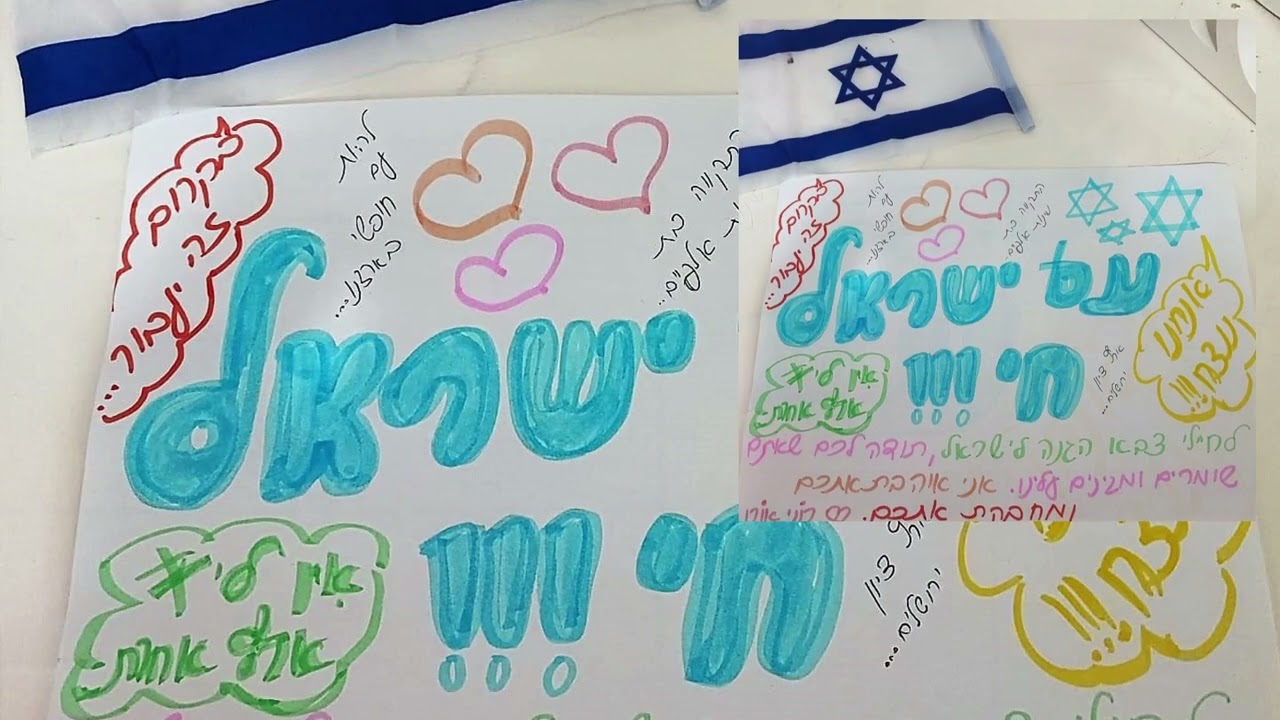 בקרוב
זה יעבור...
להיות
עם
חופשי
בארצנו...
בת
אלפיים...
ישראל
חי !!!
#אין לי
ארץ אחרת
ציון
ירושלים...
ננצח!!!
בקרוב
זה יעבור...
להיות
עם
חופשי
בארצנו...
התקווה בת
שנות אלפיים...
עם ישראל
חי !!!
#אין לי
ארץ אחרת
ארץ ציון
ירושלים...
אנחנו
ננצח!!!
לחיילי צבאו הגנה לישראל, תודה לכם שאתם
שומרים ומגינים עלינו. אני אוהבת אתכם
ומחבקת אתכם.